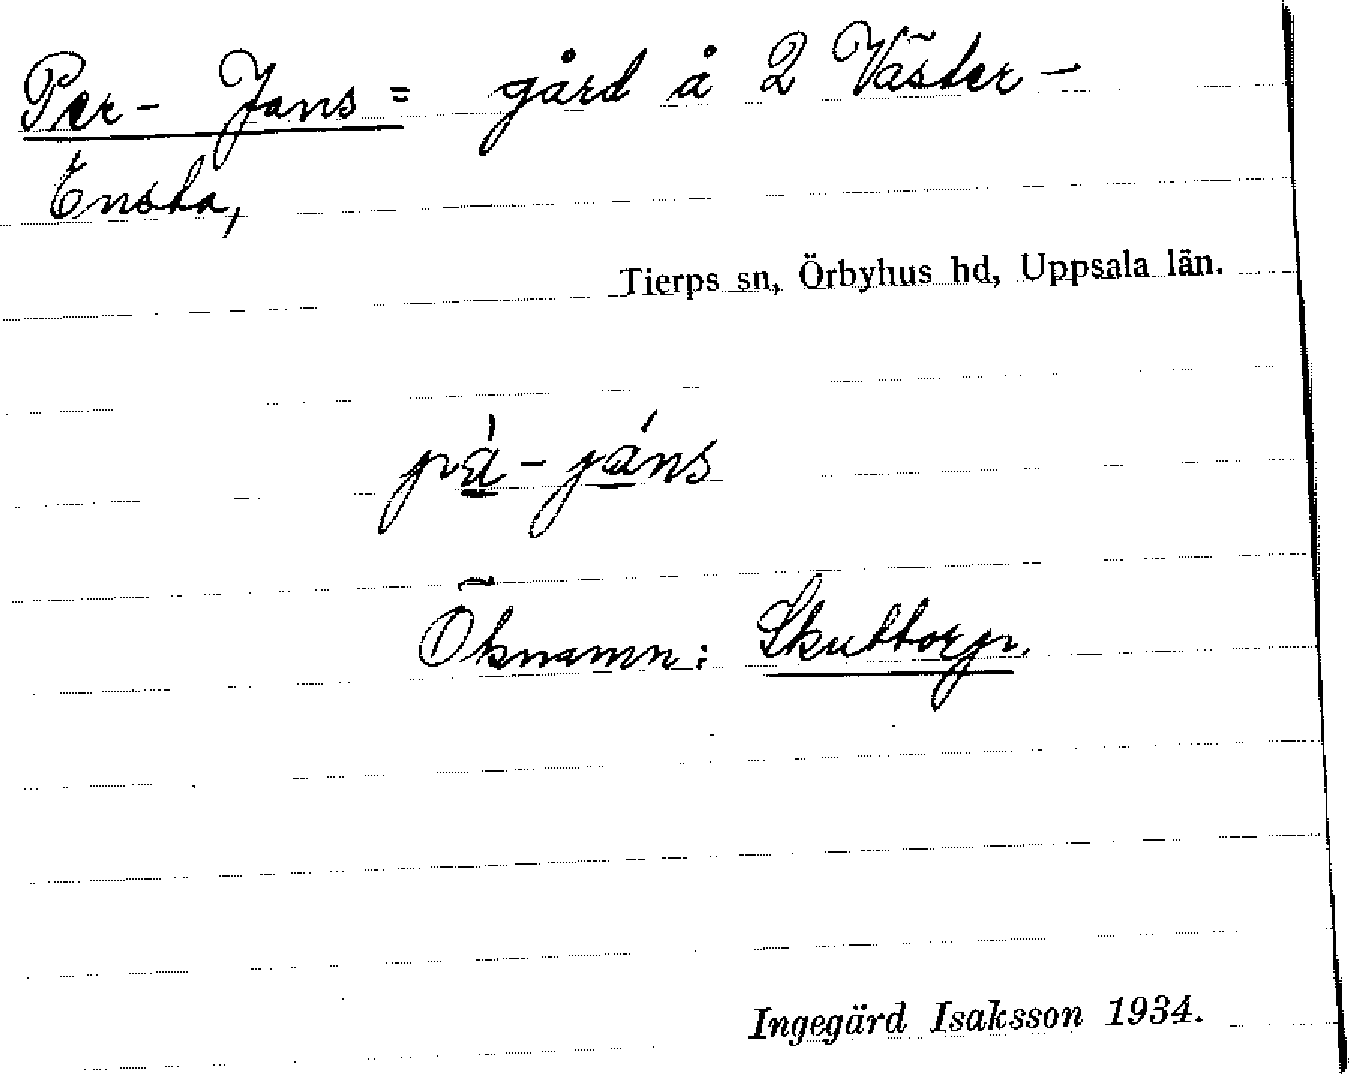 Per- Jans= gård å 2 Väster-
Ensta,
Tierps sn, Örbyhus hd, Uppsala län.
pá-jáns
Öknamn: Skuttorp.
Ingegärd Isaksson 1934.